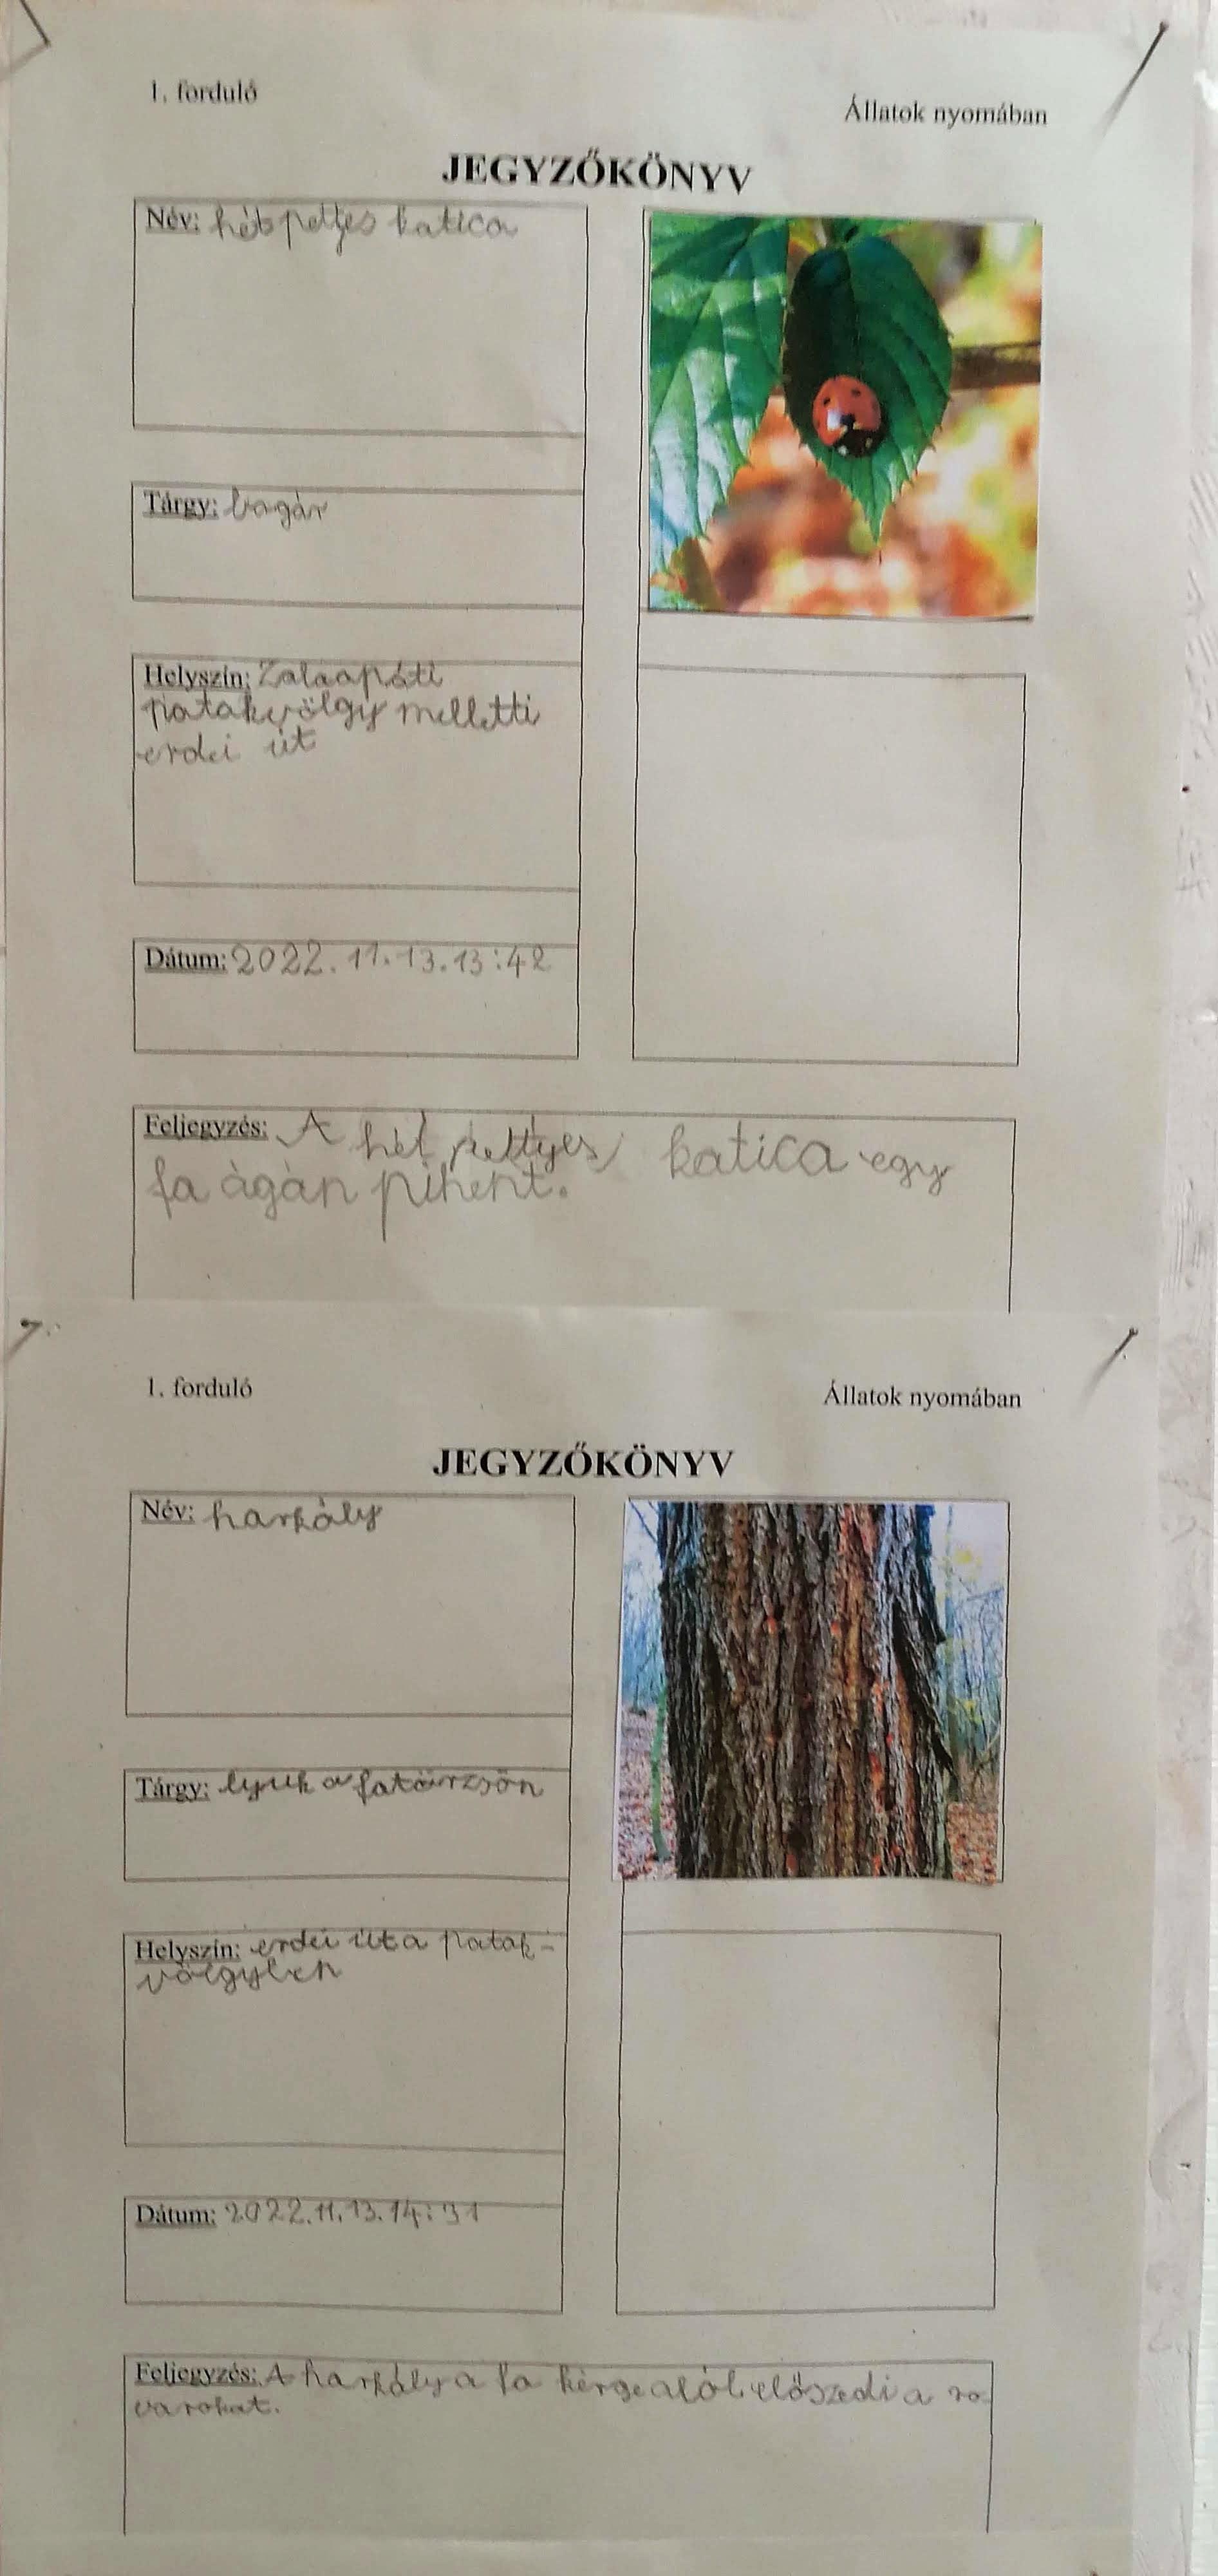 1. forduló
Állatok nyomában
JEGYZŐKÖNYV
Név: hét pettyes katica
Tárgy: bogár
Helyszín: Zalaapáti
patakvölgy melletti
erdei út
Dátum: 2022.11.13.13:42
Feljegyzés: A hét pettyes katica egy
fa ágán pihent.
1. forduló
Állatok nyomában
JEGYZŐKÖNYV
Név: harkály
Tárgy: lyuk a fatörzsön
Helyszín: erdei út a patak-
völgyben
Dátum: 2022.11.13.14:31
Feljegyzés: A harkály a fa kérge alól előszedi a ro
varokat.